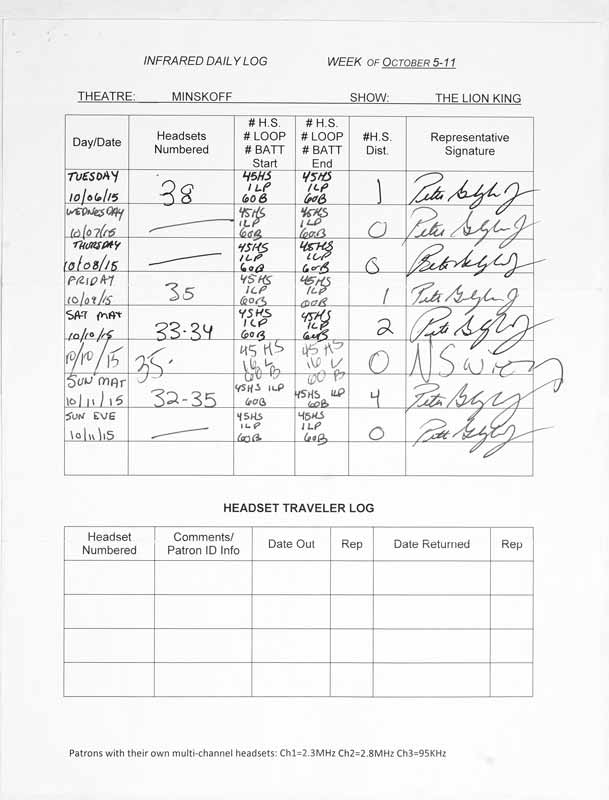 INFRARED DAILY LOG WEEK OF OCTOBER 5-11
THEATRE: MINSKOFF SHOW: THE LION KING
Day/Date Headsets Numbered # H.S. # LOOP # BATT Start # H.S. # LOOP # BATT End #H.S. Dist. Representative Signature
TUESDAY 10/06/15 38 45HS 1LP 60B 45HS 1LP 60B 1 Peter
WEDNESDAY 10/07/15 45HS 1LP 60B 45HS 1LP 60B 0 Peter
THURSDAY 10/08/15 45HS 1LP 60B 45HS 1LP 60B 0 Peter
FRIDAY 10/09/15 35 45HS 1LP 60B 45HS 1LP 60B 1 Peter
SAT MAT 10/10/15 33-34 45HS 1LP 60B 45HS 1LP 60B 2 Peter
10/10/15 35. 45 HS 60 B 45 HS 60 B 0
SUN MAT 10/11/15 32-35 45HS 1LP 60B 45HS 1LP 60B 4 Peter
SUN EVE 10/11/15 45HS 1LP 60B 45HS 1LP 60B 0
HEADSET TRAVELER LOG
Headset Numbered Comments/ Patron ID Info Date Out Rep Date Returned Rep
Patrons with their own multi-channel headsets: Ch1=2.3MHz Ch2=2.8MHz Ch3=95KHz